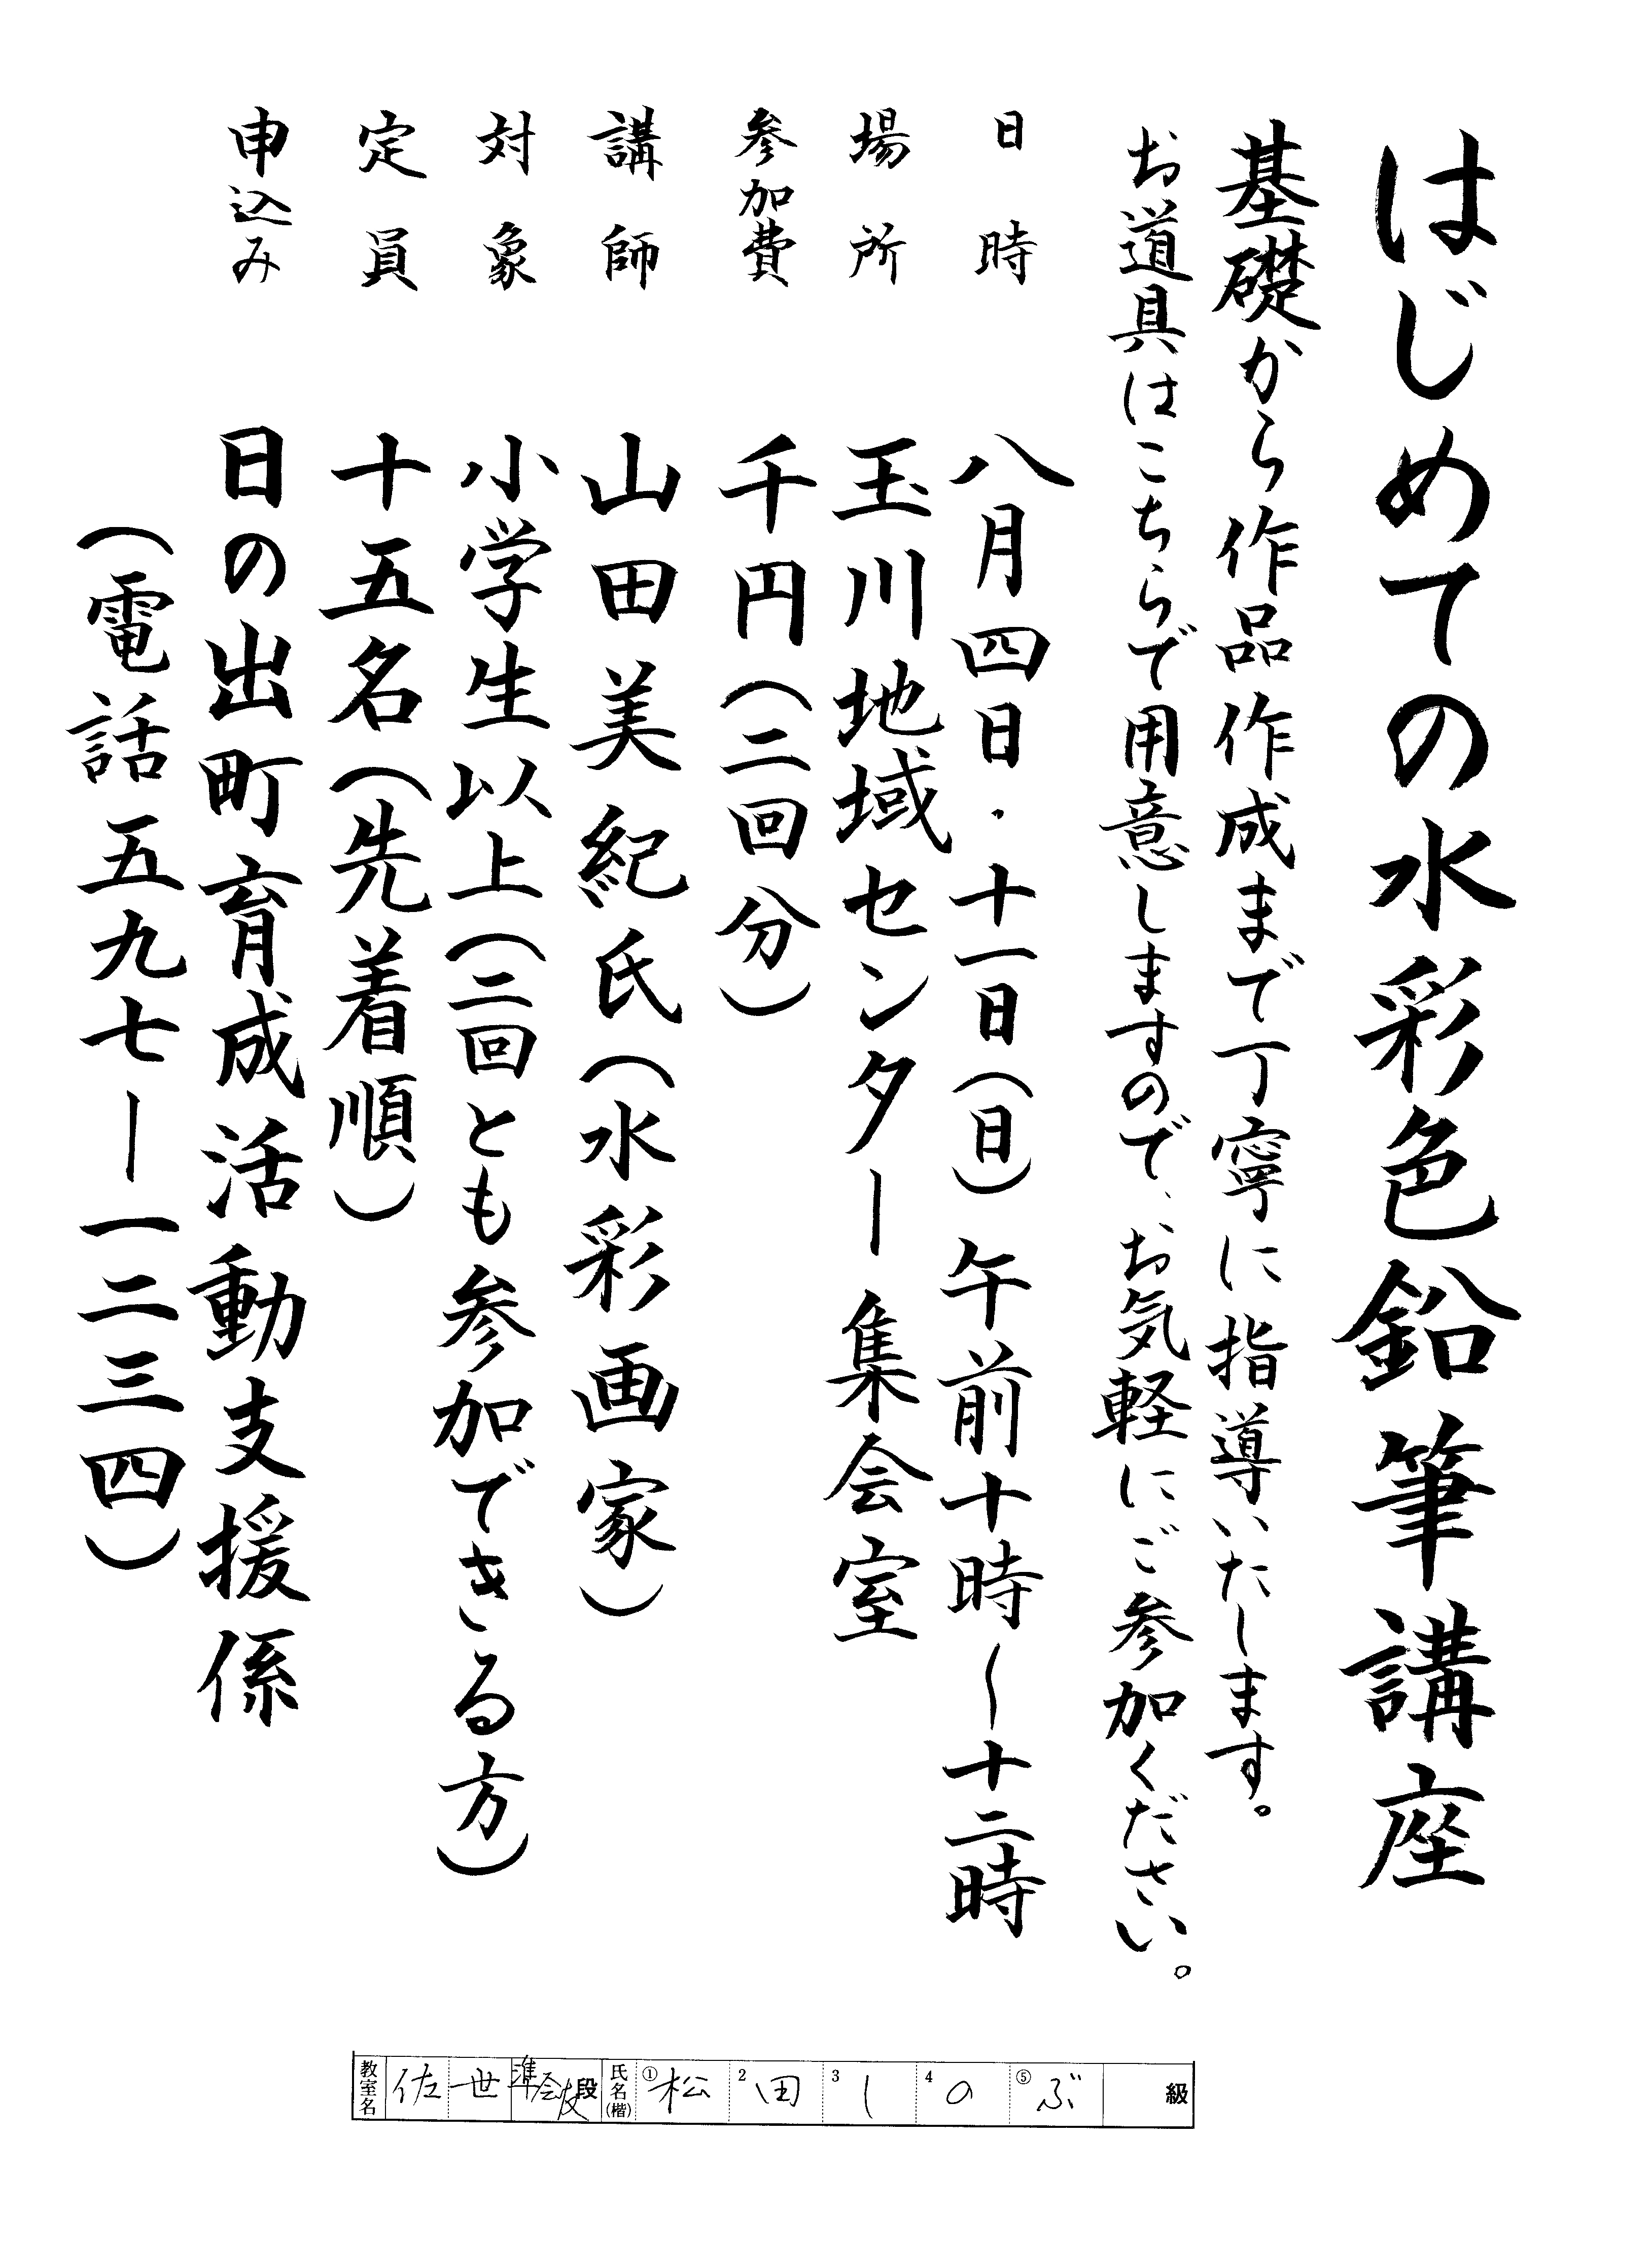 はじめての水彩色鉛筆講座
基礎から作品作成まで丁寧に指導いたします。
お道具はこちらで用意しますので、お気軽にご参加ください。
日時 八月四日・十一日(日)午前十時〜十二時
場所 玉川地域センター集会室
参加費 千円(二回分)
講師 山田美紀氏(水彩画家)
対象 小学生以上(二回とも参加できる方)
定員 十五名(先着順)
申込み 日の出町育成活動支援係
(電話五九七ー一二三四)
教室名 佐世 準会友 段 氏名(楷) ①松 2田 3し 4の ⑤ぶ 級